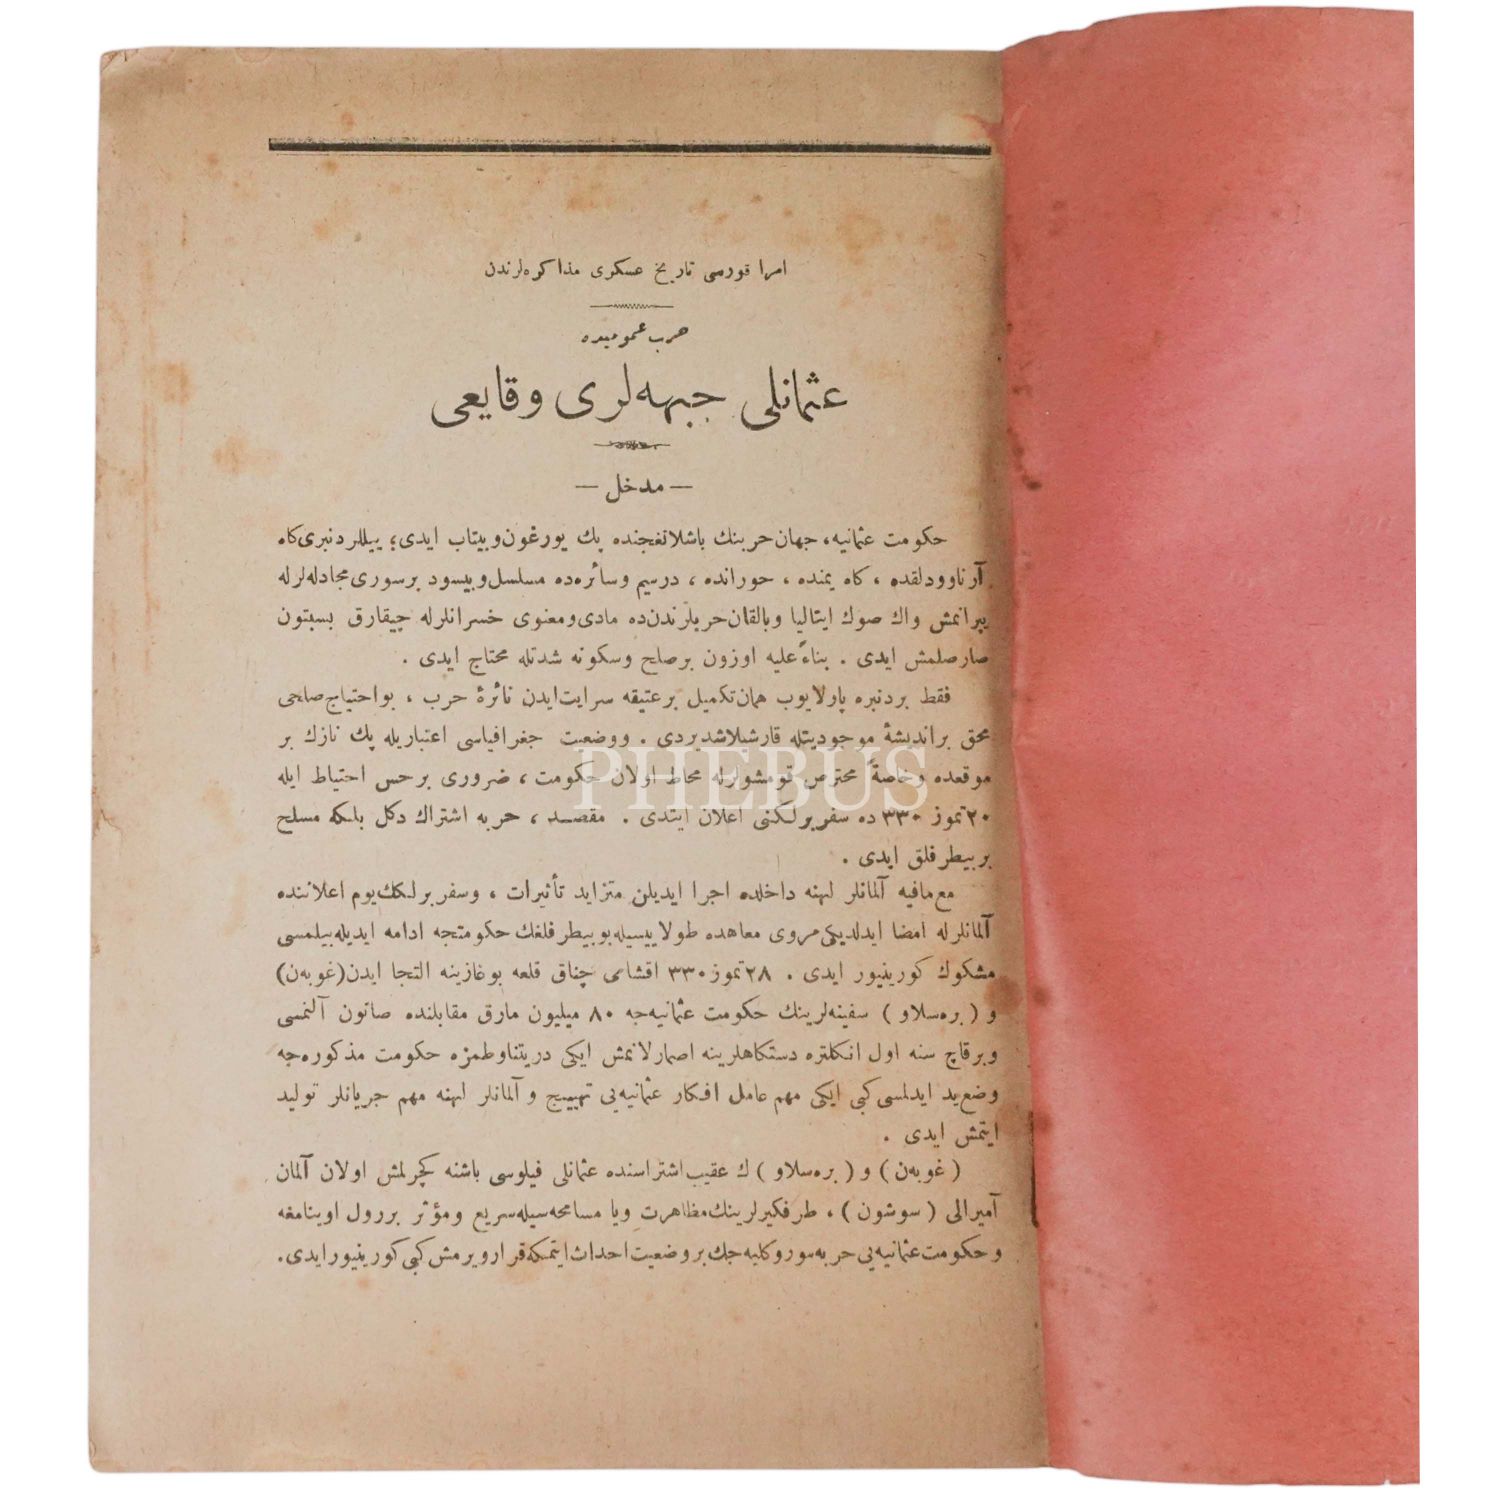 امرا قورسی تاریخ عسكری مذاكره‌لرندن
حرب عمومیده
عثمانلی جبهه‌لری وقایعی
— مدخل —
حكومت عثمانیه، جهان حربنك باشلانغجنده پك یورغون و بیتاب ایدی؛ ییللردنبری كاه
آرناوودلقده ، كاه یمنده ، حورانده ، درسیم وسائره‌ده مسلسل و بیسود برسوری مجادله‌لرله
یپرانمش واك صوك ایتالیا وبالقان حربلرندن‌ده مادی ومعنوی خسرانلرله چیقارق بسبتون
صارصلمش ایدی . بناءً علیه اوزون برصلح وسكونه شدتله محتاج ایدی .
فقط بردنبره پارلایوب همان تكمیل بر عتیقه سرایت ایدن نائرهٔ حرب ، بو احتیاج صلحی
محق براندیشهٔ موجودیتله قارشیلاشدیردی . ووضعیت جغرافیاسی اعتباریله پك نازك بر
موقعده وخاصةً محترص قومشولرله محاط اولان حكومت ، ضروری برحس احتیاط ایله
٢٠ تموز ٣٣٠ ده سفربرلكنی اعلان ایتدی . مقصد ، حربه اشتراك دكل بلكه مسلح
بربیطرفلق ایدی .
مع مافیه آلمانلر لهنه داخلده اجرا ایدیلن متزاید تأثیرات ، وسفربرلكك یوم اعلاننده
آلمانلرله امضا ایدلدیكی مروی معاهده طولاییسیله بو بیطرفلغك حكومتجه ادامه ایدیله‌بیلمسی
مشكوك كورینیور ایدی . ٢٨ تموز ٣٣٠ اقشامی چناق قلعه بوغازینه التجا ایدن (غوبه‌ن)
و ( بره‌سلاو ) سفینه‌لرینك حكومت عثمانیه‌جه ٨٠ میلیون مارق مقابلنده صاتون آلنمسی
وبرقاچ سنه اول انكلتره دستكاهلرینه اصمارلانمش ایكی دریتناوطمزه حكومت مذكوره‌جه
وضع ید ایدلمسی كبی ایكی مهم عامل افكار عثمانیه‌یی تهییج و آلمانلر لهنه مهم جریانلر تولید
ایتمش ایدی .
( غوبه‌ن ) و ( بره‌سلاو ) ك عقیب اشتراسنده عثمانلی فیلوسی باشنه كچرلمش اولان آلمان
آمیرالی ( سوشون ) ، طرفكیرلرینك مظاهرت ویا مسامحه‌سیله سریع ومؤثر بررول اوینامغه
وحكومت عثمانیه‌یی حربه سوروكلیه‌جك بروضعیت احداث ایتمكه قرار ویرمش كبی كورینیور ایدی .
PHEBUS